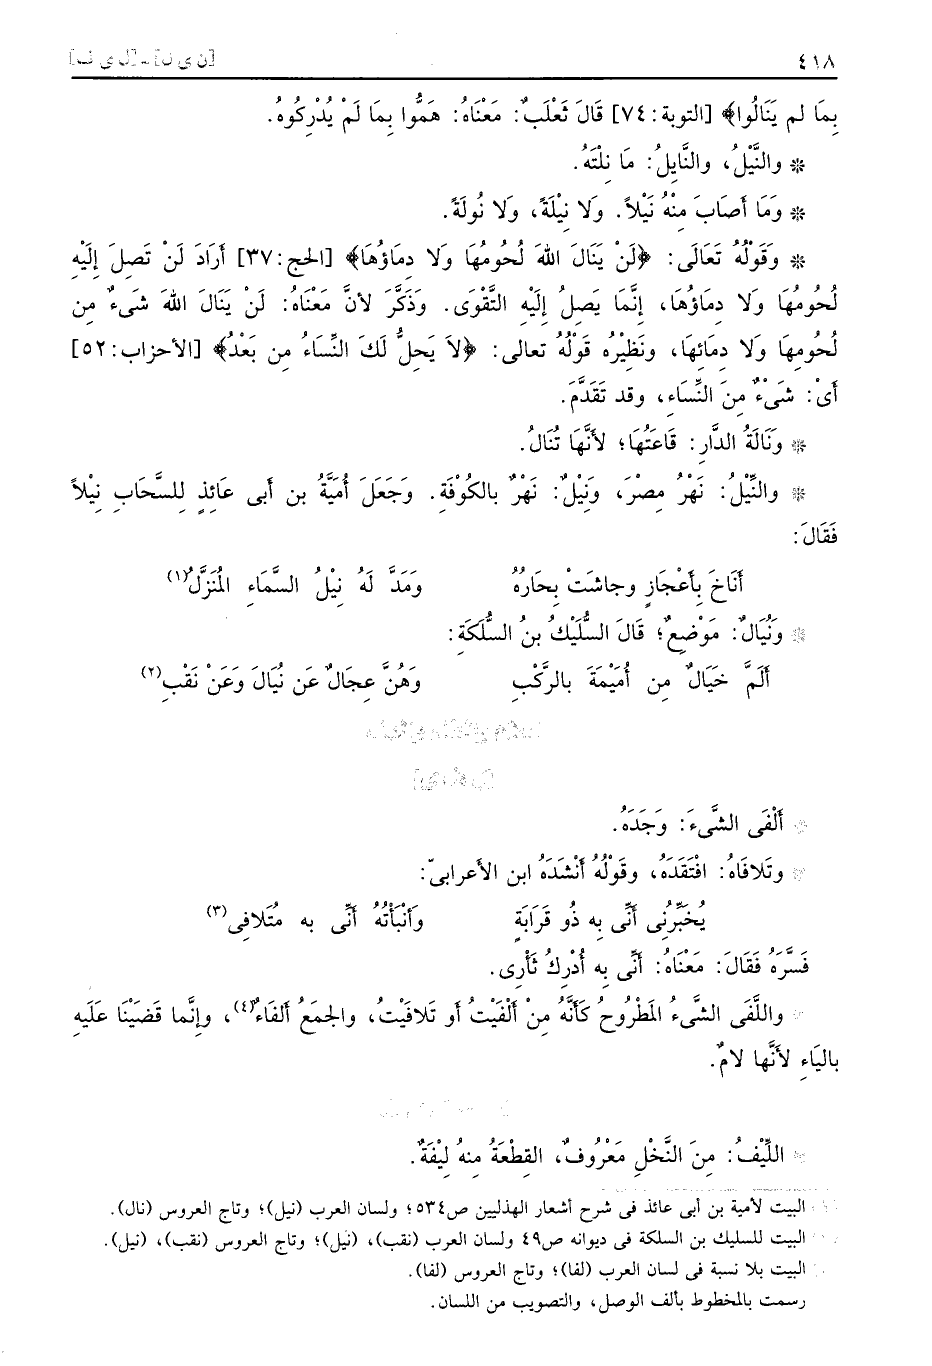 ٤١٨ [ن ى ل] ـ [ل ى ف]
بِمَا لم يَنَالُوا﴾ [التوبة:٧٤] قَالَ ثَعْلَبٌ: مَعْنَاهُ: هَمُّوا بِمَا لَمْ يُدْرِكُوهُ.
* والنَّيْلُ، والنَّايِلُ: مَا نِلْتَهُ.
* وَمَا أصَابَ مِنْهُ نَيْلاً. وَلا نَيْلَةً، وَلا نُولَةً.
* وَقَوْلُهُ تَعَالَى: ﴿لَنْ يَنَالَ اللهَ لُحُومُهَا وَلا دِمَاؤُهَا﴾ [الحج:٣٧] أَرَادَ لَنْ تَصِلَ إلَيْهِ
لُحُومُهَا وَلا دِمَاؤُهَا، إنَّمَا يَصِلُ إلَيْهِ التَّقْوَى. وَذَكَّرَ لأنَّ مَعْنَاهُ: لَنْ يَنَالَ اللهَ شَىءٌ من
لُحُومِها وَلا دِمَائِها، ونَظِيْرُه قَوْلُهُ تعالى: ﴿لاَ يَحِلُّ لَكَ النِّسَاءُ مِن بَعْدُ﴾ [الأحزاب:٥٢]
أىْ: شَىْءٌ مِنَ النِّسَاءِ، وقد تَقَدَّمَ.
* وَنَالَةُ الدَّارِ: قَاعَتُهَا؛ لأنَّهَا تُنَالُ.
* والنِّيْلُ: نَهْرُ مِصْرَ، وَنِيْلٌ: نَهْرٌ بالكُوْفَةِ. وَجَعَلَ أُمَيَّةُ بن أبى عَائِذٍ لِلسَّحَابِ نِيْلاً
فَقَالَ:
أَنَاخَ بِأَعْجَازٍ وجاشَتْ بِحَارُهُ وَمَدَّ لَهُ نِيْلُ السَّمَاءِ المُنَزَّلُ(١)
* وَنُيَالٌ: مَوْضِعٌ؛ قَالَ السُّلَيْكُ بنُ السُّلَكَةِ:
أَلَمَّ خَيَالٌ مِن أُمَيْمَةَ بالرَّكْبِ وَهُنَّ عِجَالٌ عَن نُيَالَ وَعَنْ نَقْبِ(٢)
* أَلْفَى الشَّىءَ: وَجَدَهُ.
* وتَلافَاهُ: افْتَقَدَهُ، وقَوْلُهُ أَنْشَدَهُ ابن الأعرابىّ:
يُخَبِّرُنِى أَنِّى بِه ذُو قَرَابَةٍ وَأَنْبَأْتُهُ أَنِّى به مُتَلافِى(٣)
فَسَّرَهُ فَقَالَ: مَعْنَاهُ: أَنِّى بِه أُدْرِكُ ثَأْرِى.
* واللَّفَى الشَّىءُ المَطْرُوحُ كَأَنَّهُ مِنْ أَلْفَيْتُ أو تَلافَيْتُ، والجَمْعُ أَلفَاءٌ(٤)، وإنَّما قَضَيْنَا عَلَيهِ
بالْيَاءِ لأَنَّها لامٌ.
* اللِّيْفُ: مِنَ النَّخْلِ مَعْرُوفٌ، القِطْعَةُ مِنهُ لِيْفَةٌ.
البيت لأمية بن أبى عائذ فى شرح أشعار الهذليين ص٥٣٤؛ ولسان العرب (نيل)؛ وتاج العروس (نال).
البيت للسليك بن السلكة فى ديوانه ص٤٩ ولسان العرب (نقب)، (نيل)؛ وتاج العروس (نقب)، (نيل).
البيت بلا نسبة فى لسان العرب (لفا)؛ وتاج العروس (لفا).
رسمت بالمخطوط بألف الوصل، والتصويب من اللسان.